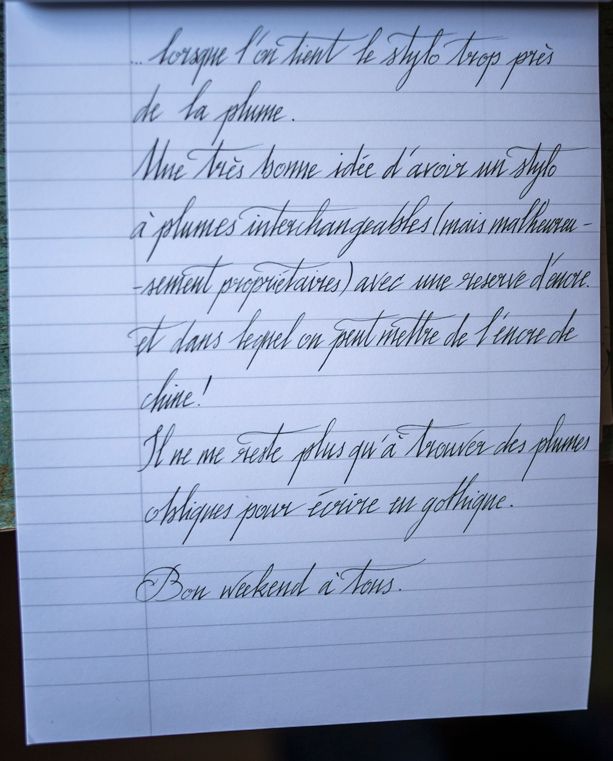 ... lorsque l'on tient le stylo trop près
de la plume.
Une très bonne idée d'avoir un stylo
à plumes interchangeables (mais malheureu-
-sement propriétaires) avec une reserve d'encre.
et dans lequel on peut mettre de l'encre de
chine!
Il ne me reste plus qu'à trouver des plumes
obliques pour écrire en gothique.
Bon weekend à tous.